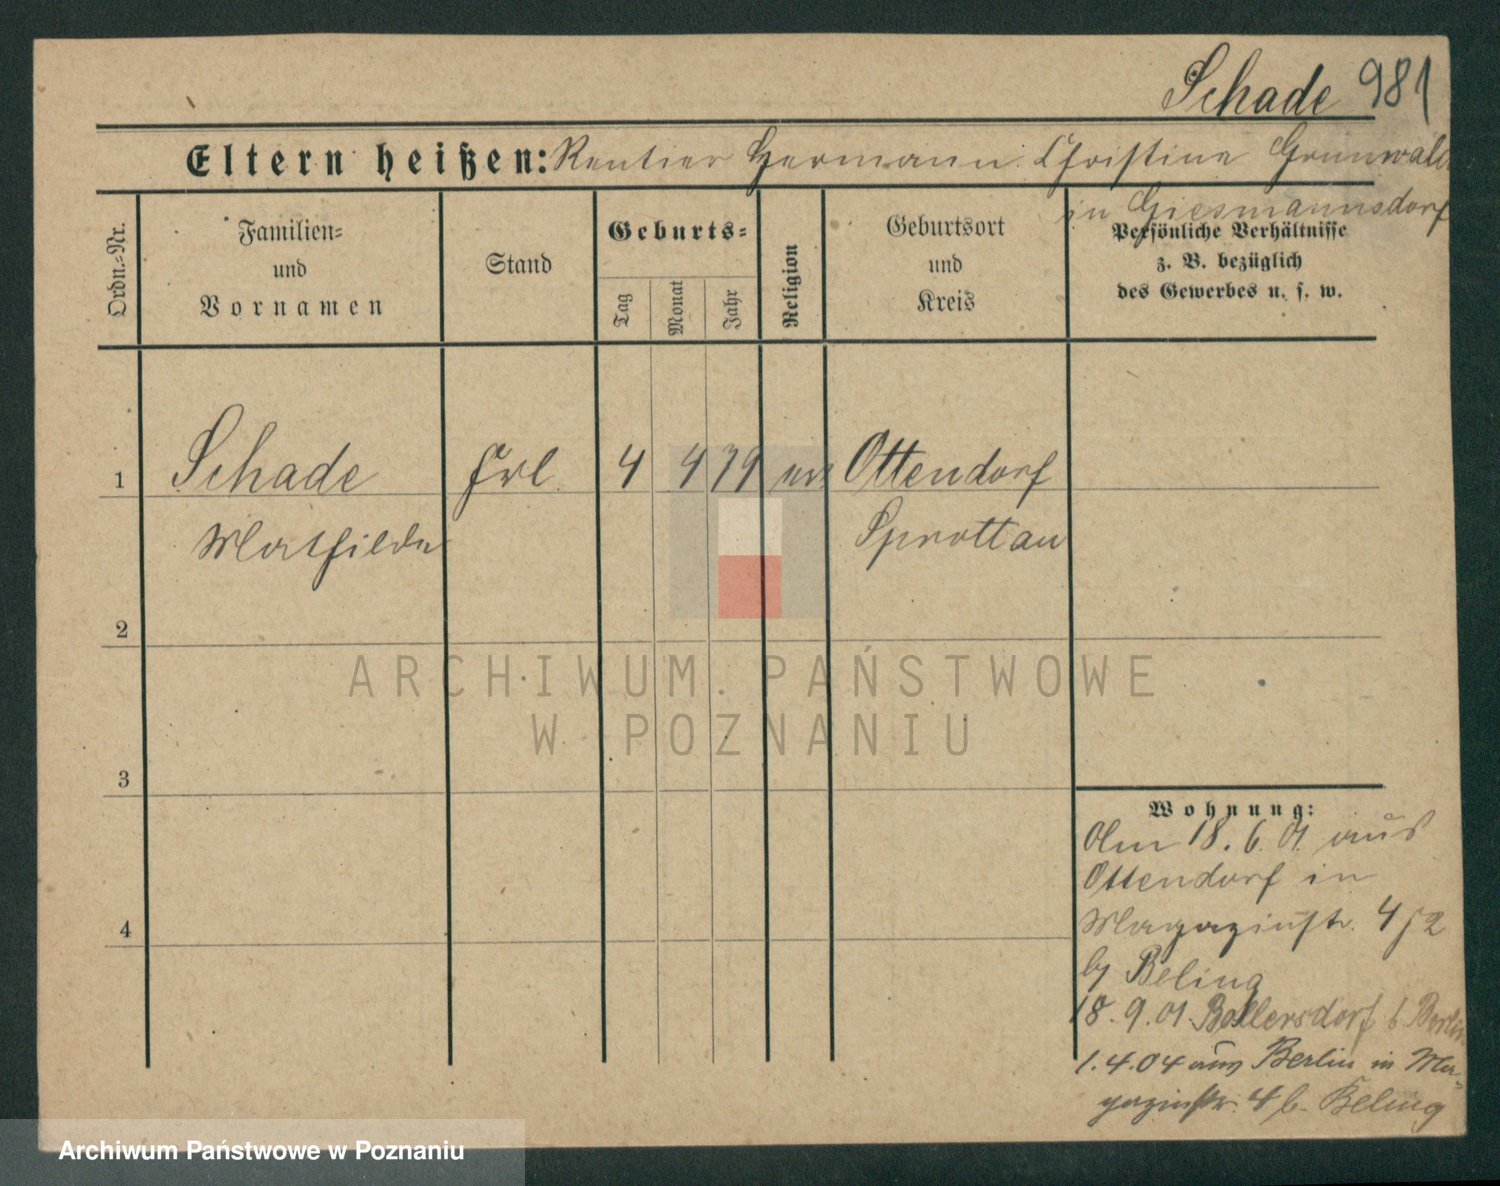 Schade 981
Eltern heißen: Rentier Hermann. Christine Grunwald
in Giesmannsdorf
Ordn.-Nr.
Familien-
und
Vornamen
Stand
Geburts-
Tag
Monat
Jahr
Religion
Geburtsort
und
Kreis
Persönliche Verhältnisse
z. B. bezüglich
des Gewerbes u. s. w.
1 Schade Frl 4 4 79 Ottendorf
Mathilde Sprottau
2
3
4
Wohnung:
18. 6. 01. aus
Ottendorf in
Magazinstr. 4
Beling
18. 9. 01. Bollersdorf b Berlin
1. 4. 04 aus Berlin in Ma-
gazinstr. 4 b. Beling
ARCHIWUM PAŃSTWOWE
W POZNANIU
Archiwum Państwowe w Poznaniu